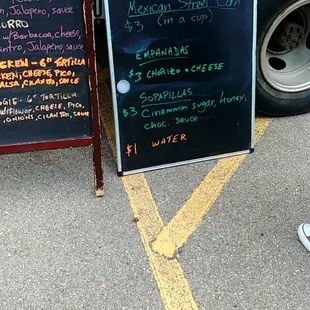 Jalapeno, sauce
w/ Barbacoa, cheese,
Jalapeno, sauce
6" TORTILLA
CHEESE, PICO,
SALSA, CILANTRO, SAUCE
6" TORTILLA
CHEESE, PICO,
ONIONS, CILANTRO, SAUCE
Mexican Street Corn
$3 (in a cup)
EMPANADAS
$3 CHORIZO + CHEESE
SOPAPILLAS
$3 Cinammon sugar, honey,
choc. sauce
$1 WATER